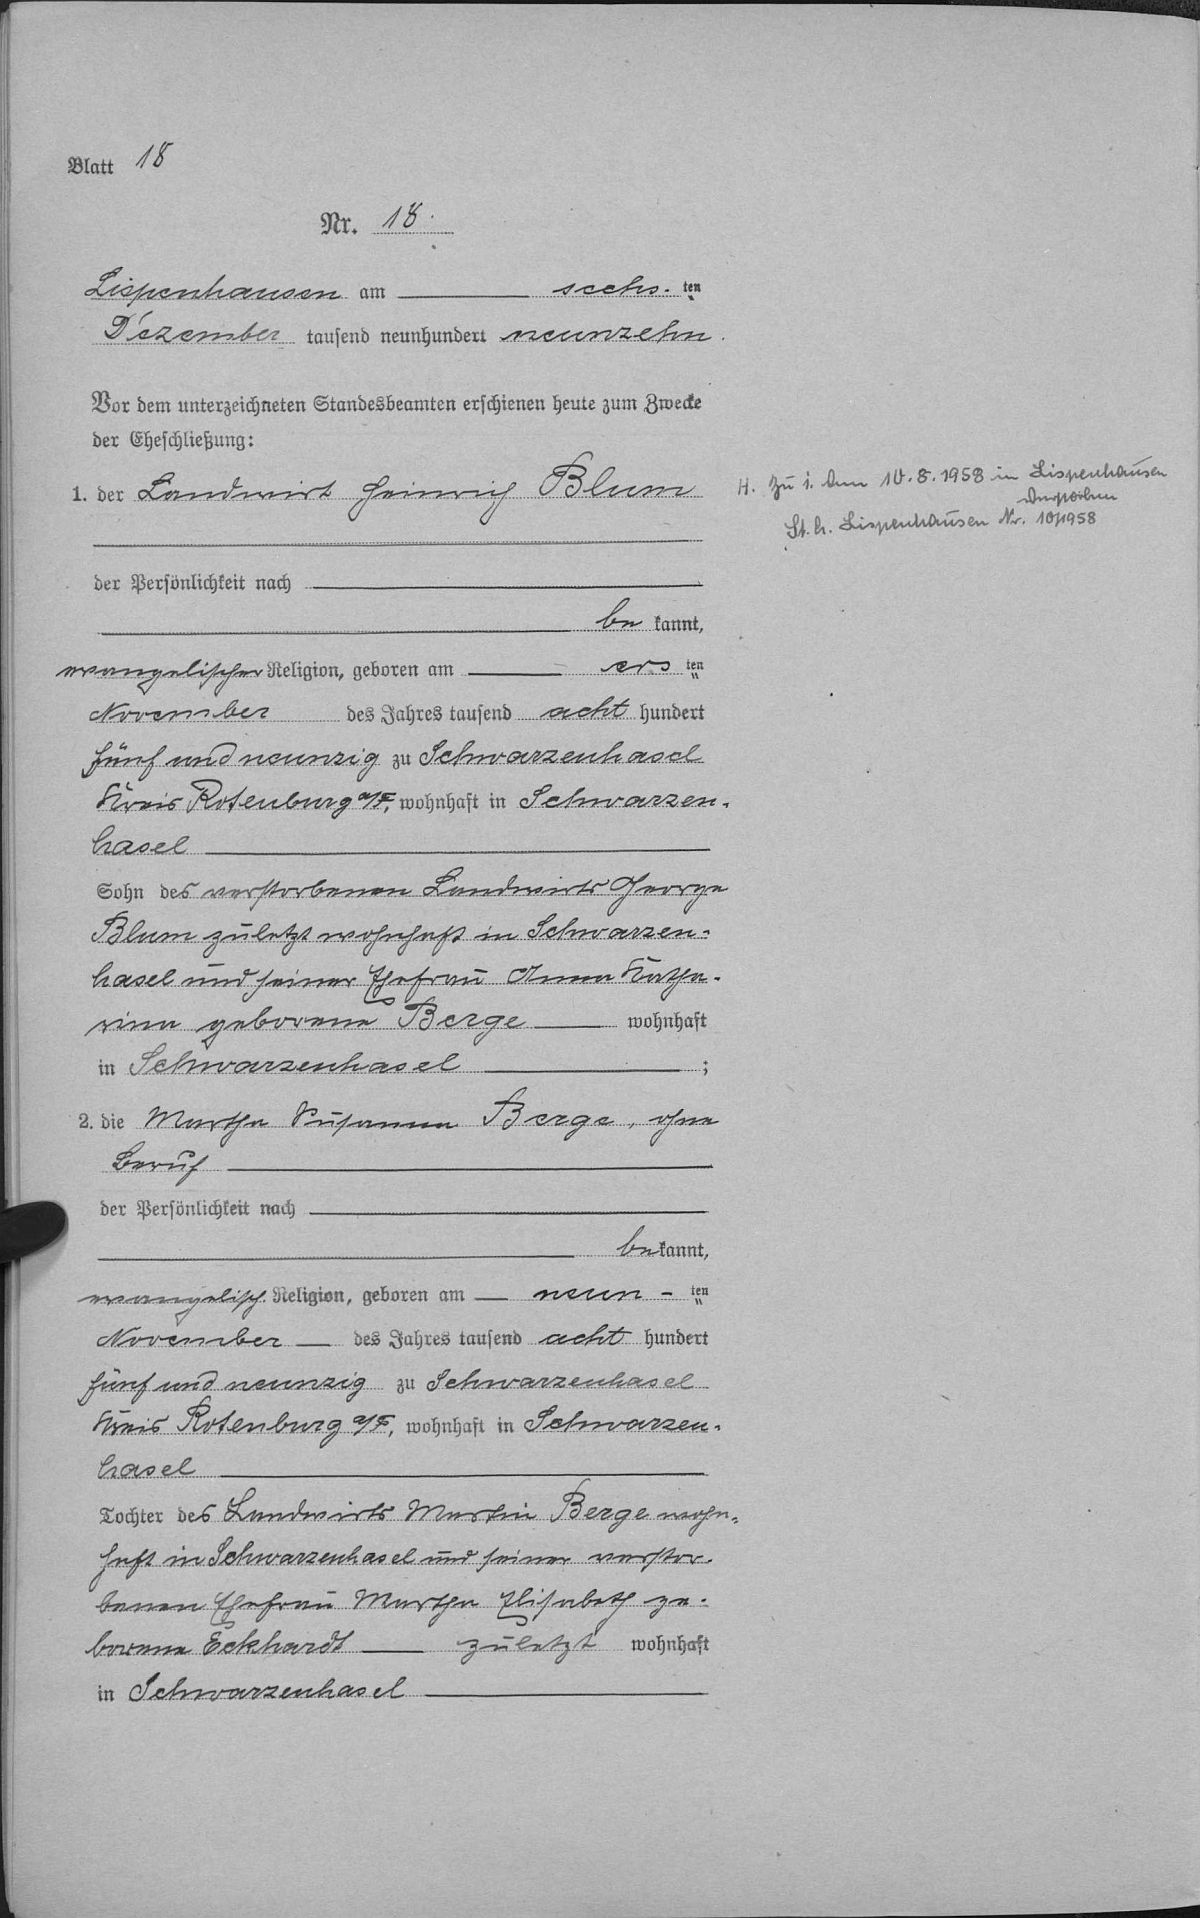 Blatt 18
Nr. 18.
Lispenhausen am sechs-ten
Dezember tausend neunhundert neunzehn.
Vor dem unterzeichneten Standesbeamten erschienen heute zum Zwecke
der Eheschließung:
1. der Landwirt Heinrich Blum
der Persönlichkeit nach
bekannt,
evangelischer Religion, geboren am ersten
November des Jahres tausend acht hundert
fünf und neunzig zu Schwarzenhasel
Kreis Rotenburg a/F, wohnhaft in Schwarzen-
hasel
Sohn des verstorbenen Landwirts George
Blum zuletzt wohnhaft in Schwarzen-
hasel und seiner Ehefrau Anna Katha-
rina geborene Berge wohnhaft
in Schwarzenhasel ;
2. die Martha Susanna Berge, ohne
Beruf
der Persönlichkeit nach
bekannt,
evangelisch. Religion, geboren am neun-ten
November des Jahres tausend acht hundert
fünf und neunzig zu Schwarzenhasel
Kreis Rotenburg a/F, wohnhaft in Schwarzen-
hasel
Tochter des Landwirts Martin Berge wohn-
haft in Schwarzenhasel und seiner verstor-
benen Ehefrau Martha Elisabeth ge-
borene Eckhardt zuletzt wohnhaft
in Schwarzenhasel
H. Zu 1. am 10.8.1958 in Lispenhausen
verstorben
St. A. Lispenhausen Nr. 10/1958